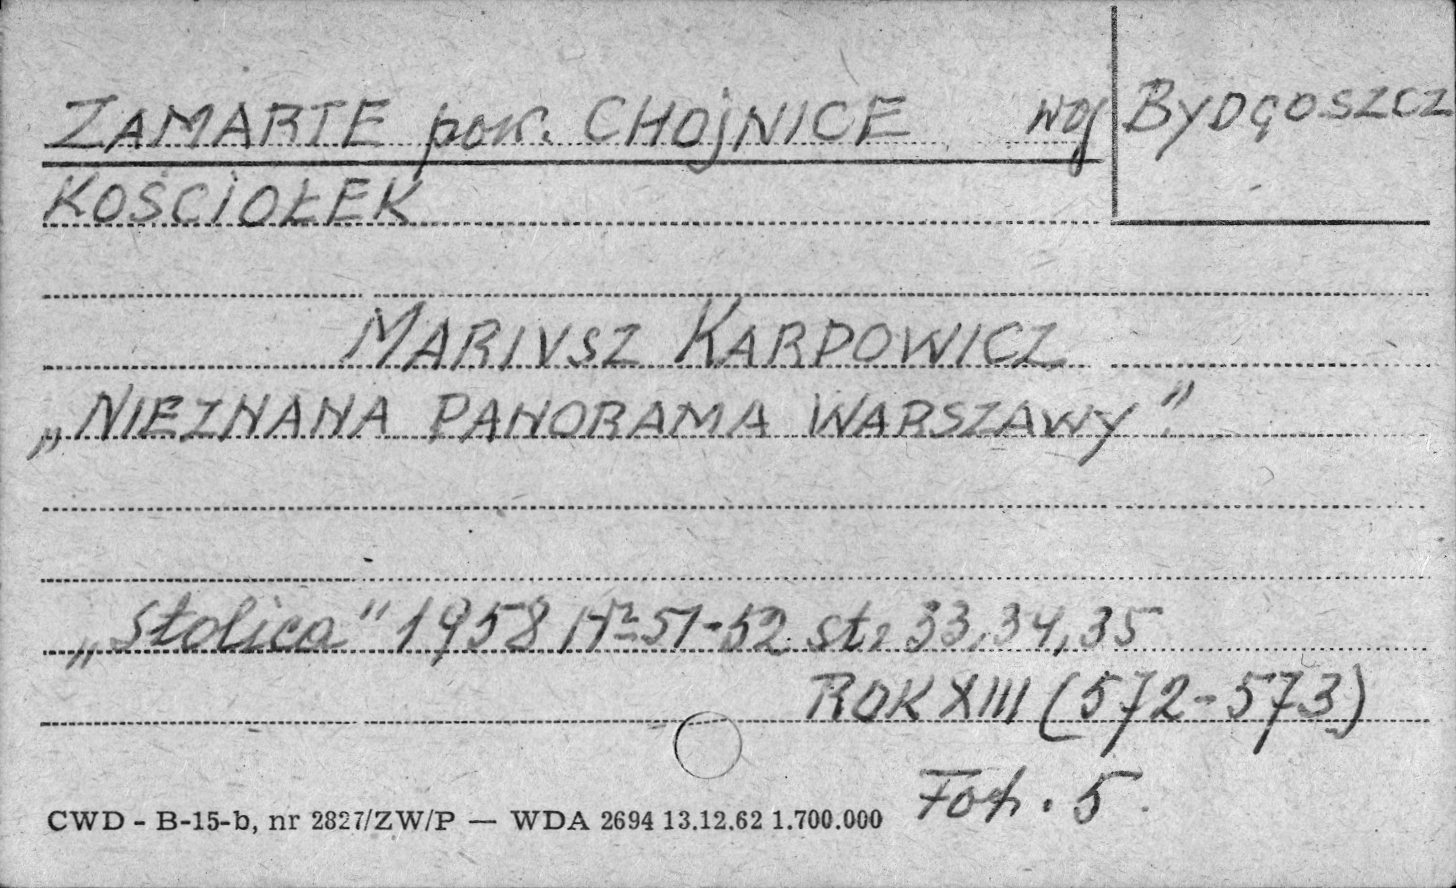 ZAMARTE pow. CHOJNICE woj Bydgoszcz
KOŚCIOŁEK
MARIUSZ KARPOWICZ
„NIEZNANA PANORAMA WARSZAWY".
„Stolica" 1958 Nr 51-52 str 33,34,35
ROK XIII (572-573)
Fot. 5.
CWD - B-15-b, nr 2827/ZW/P — WDA 2694 13.12.62 1.700.000